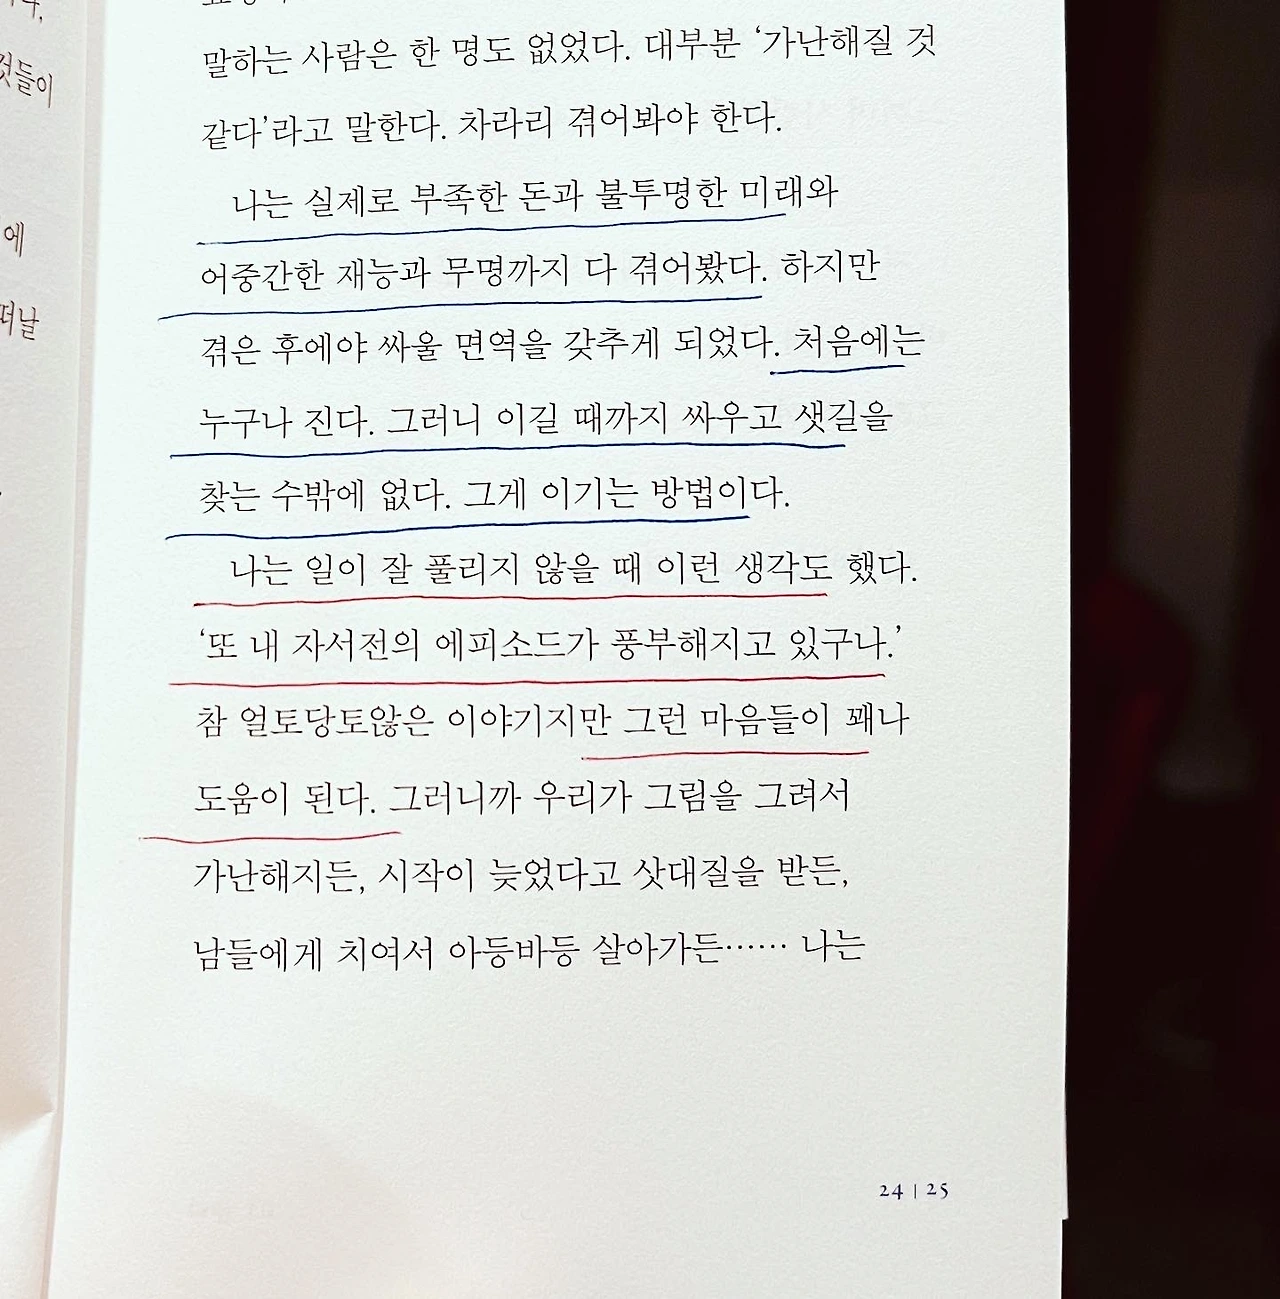 것들이
에
떠날
말하는 사람은 한 명도 없었다. 대부분 ‘가난해질 것
같다’라고 말한다. 차라리 겪어봐야 한다.
나는 실제로 부족한 돈과 불투명한 미래와
어중간한 재능과 무명까지 다 겪어봤다. 하지만
겪은 후에야 싸울 면역을 갖추게 되었다. 처음에는
누구나 진다. 그러니 이길 때까지 싸우고 샛길을
찾는 수밖에 없다. 그게 이기는 방법이다.
나는 일이 잘 풀리지 않을 때 이런 생각도 했다.
‘또 내 자서전의 에피소드가 풍부해지고 있구나.’
참 얼토당토않은 이야기지만 그런 마음들이 꽤나
도움이 된다. 그러니까 우리가 그림을 그려서
가난해지든, 시작이 늦었다고 삿대질을 받든,
남들에게 치여서 아등바등 살아가든…… 나는
24 | 25